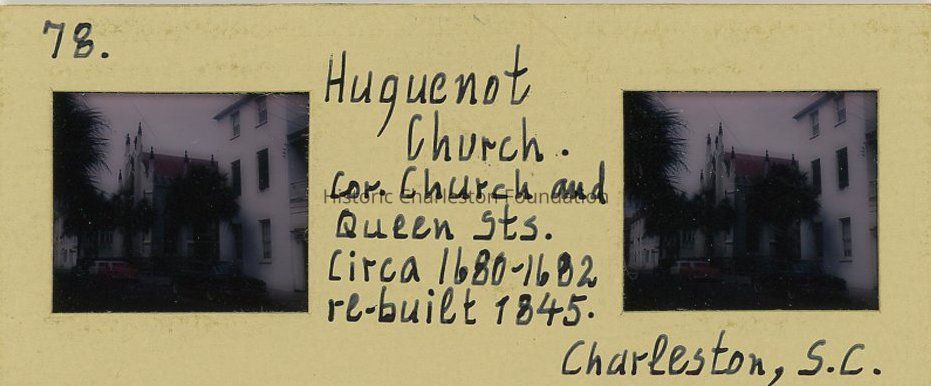 78.
Huguenot
Church.
Cor. Church and
Historic Charleston Foundation
Queen Sts.
Circa 1680-1682
re-built 1845.
Charleston, S.C.